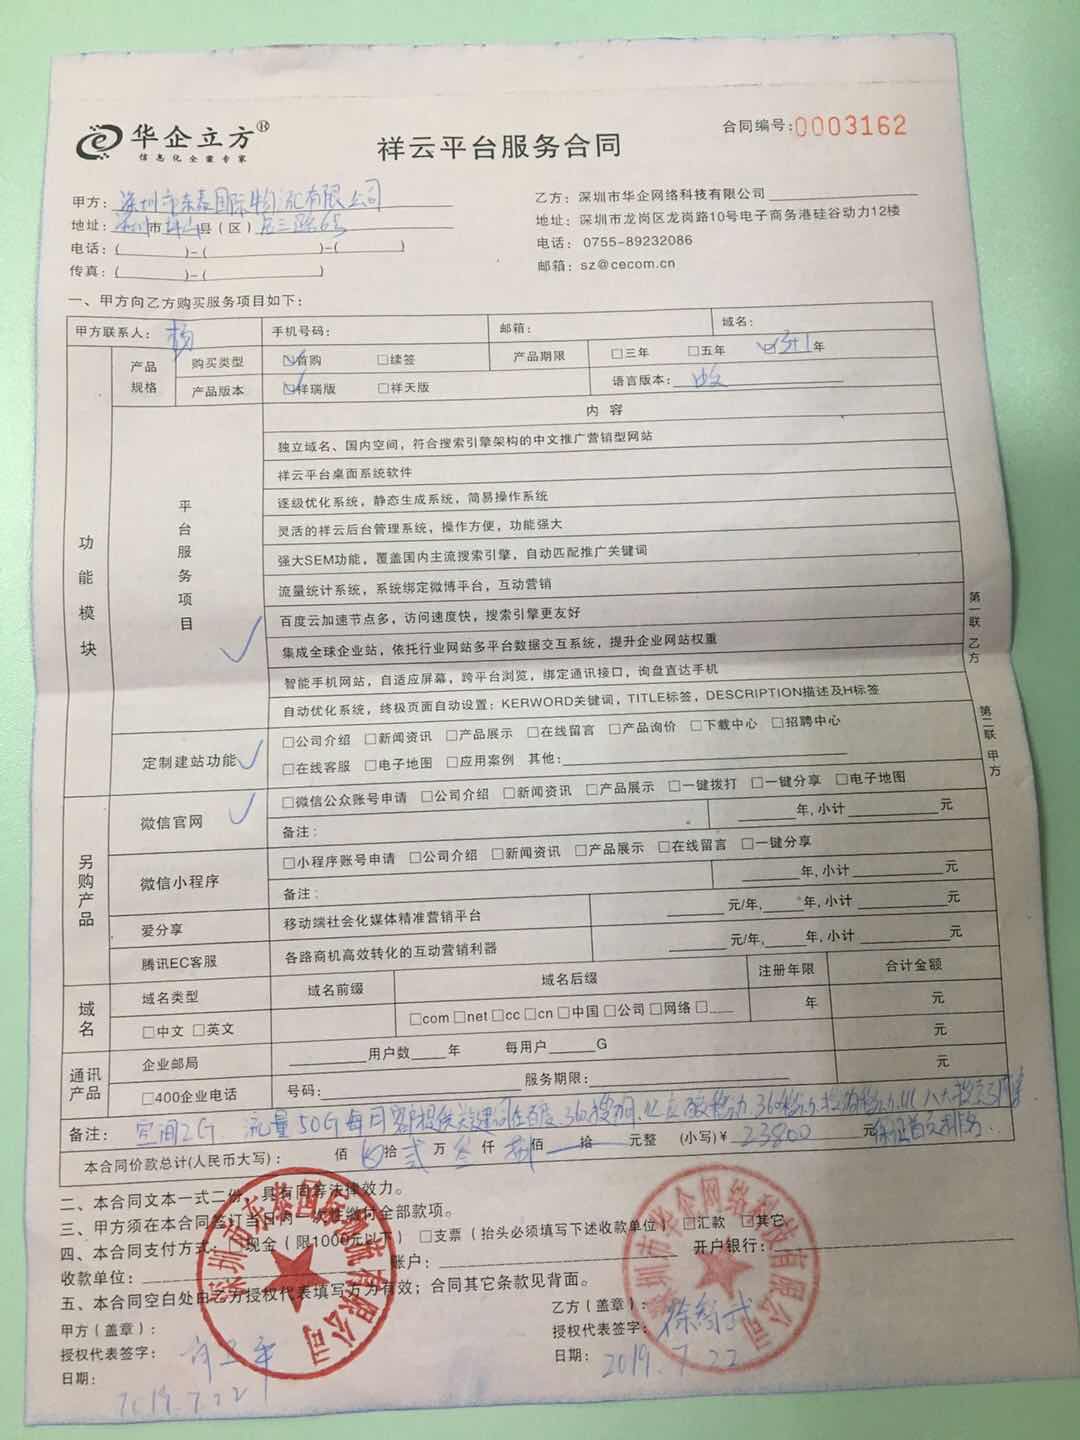 华企立方®
信息化全案专家
祥云平台服务合同
合同编号:0003162
甲方：深圳市东泰国际物流有限公司
地址：深圳市坪山县（区）
电话：( )-( )-( )
传真：( )-( )
乙方：深圳市华企网络科技有限公司
地址：深圳市龙岗区龙岗路10号电子商务港硅谷动力12楼
电话：0755-89232086
邮箱：sz@cecom.cn
一、甲方向乙方购买服务项目如下：
甲方联系人：杨 手机号码： 邮箱： 域名：
产品规格 购买类型 ☑首购 □续签 产品期限 □三年 □五年 年
产品版本 ☑祥瑞版 □祥天版 语言版本：中文
功能模块
平台服务项目
内 容
独立域名、国内空间，符合搜索引擎架构的中文推广营销型网站
祥云平台桌面系统软件
逐级优化系统，静态生成系统，简易操作系统
灵活的祥云后台管理系统，操作方便，功能强大
强大SEM功能，覆盖国内主流搜索引擎，自动匹配推广关键词
流量统计系统，系统绑定微博平台，互动营销
百度云加速节点多，访问速度快，搜索引擎更友好
集成全球企业站，依托行业网站多平台数据交互系统，提升企业网站权重
智能手机网站，自适应屏幕，跨平台浏览，绑定通讯接口，询盘直达手机
自动优化系统，终极页面自动设置：KERWORD关键词，TITLE标签，DESCRIPTION描述及H标签
定制建站功能 ✓ □公司介绍 □新闻资讯 □产品展示 □在线留言 □产品询价 □下载中心 □招聘中心
□在线客服 □电子地图 □应用案例 其他：
第一联 乙方
第二联 甲方
另购产品
微信官网 ✓ □微信公众账号申请 □公司介绍 □新闻资讯 □产品展示 □一键拨打 □一键分享 □电子地图
备注： 年，小计 元
微信小程序 □小程序账号申请 □公司介绍 □新闻资讯 □产品展示 □在线留言 □一键分享
备注： 年，小计 元
爱分享 移动端社会化媒体精准营销平台 元/年， 年，小计 元
腾讯EC客服 各路商机高效转化的互动营销利器 元/年， 年，小计 元
域名 域名类型 域名前缀 域名后缀 注册年限 合计金额
□中文 □英文 □com □net □cc □cn □中国 □公司 □网络 □ 年 元
通讯产品 企业邮局 用户数 年 每用户 G 元
□400企业电话 号码： 服务期限： 元
备注：空间2G 流量50G
本合同价款总计(人民币大写)： 佰 拾贰万叁仟捌佰 拾 元整 (小写)￥23800元 保证首页排名
二、本合同文本一式二份，具有同等法律效力。
三、甲方须在本合同签订当日内一次性缴付全部款项。
四、本合同支付方式： 现金（限1000元以下） □支票（抬头必须填写下述收款单位） □汇款 □其它
收款单位： 账户： 开户银行：
五、本合同空白处由乙方授权代表填写方为有效；合同其它条款见背面。
甲方（盖章）：
授权代表签字：
日期：2019.7.22
乙方（盖章）：
授权代表签字：
日期：2019.7.22
深圳市东泰国际物流有限公司
深圳市华企网络科技有限公司